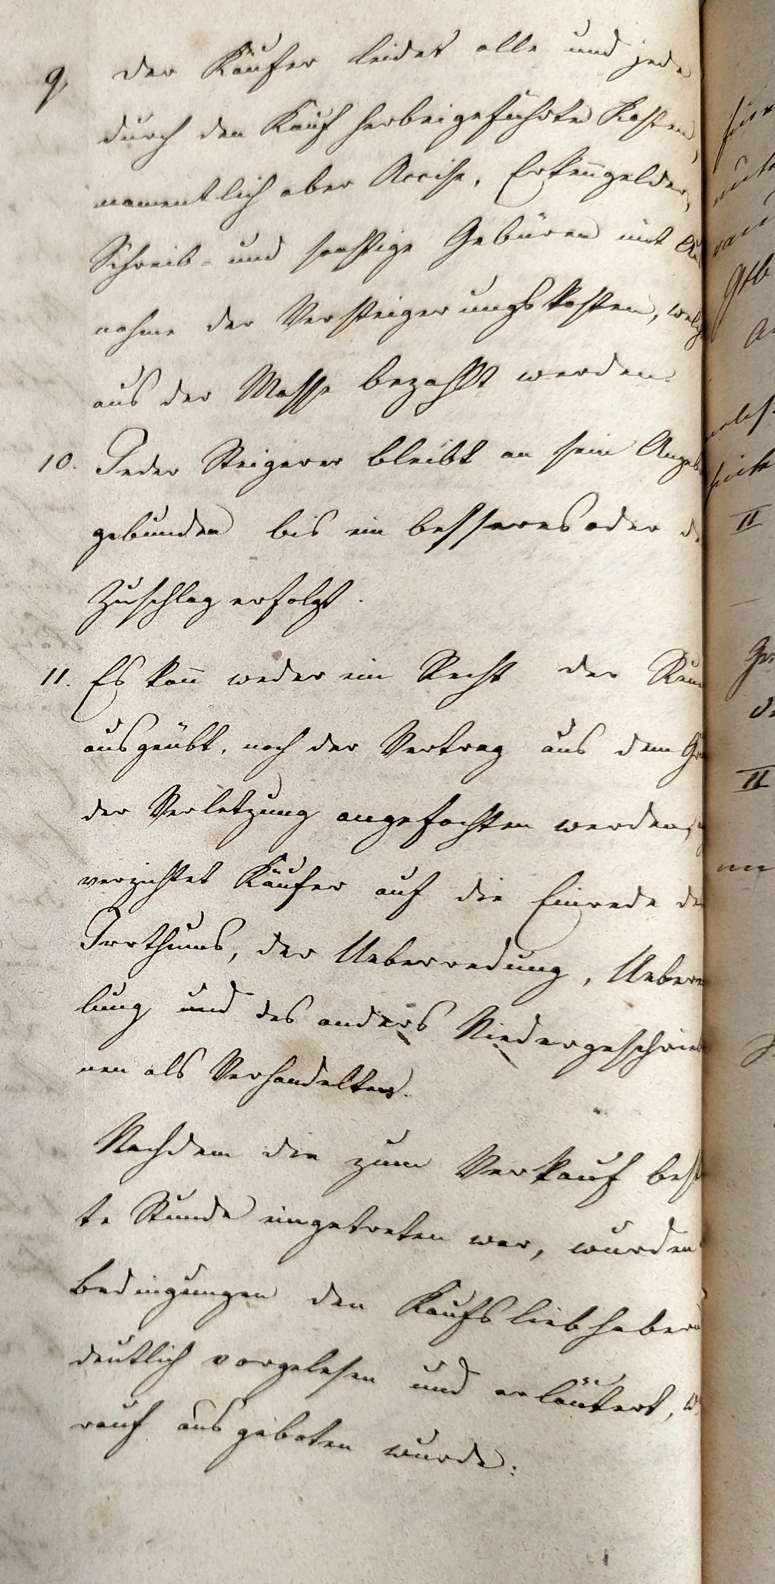 9. Der Käufer leidet alle und jede
durch den Kauf herbeigeführte Kosten,
namentlich aber Accise, Erkenngelder,
Schreib- und sonstige Gebüren mit Au
nahme der Versteigerungskosten, welch
aus der Masse bezahlt werden.
10. Jeder Steigerer bleibt an sein Angeb
gebunden bis ein besseres oder de
Zuschlag erfolgt.
11. Es kan̄ weder ein Recht der Reu
ausgeübt, noch der Vertrag aus dem G
der Verletzung angefochten werden,
verzichtet Käufer auf die Einrede de
Irrthums, der Ueberredung, Ueberei
lung und des anders Niedergeschrieb
nen als Verhandelten.
Nachdem die zum Verkauf best
te Stunde eingetreten war, wurden
Bedingungen den Kaufsliebhabern
deutlich vorgelesen und erläutert, w
rauf ausgeboten wurde:
II
II